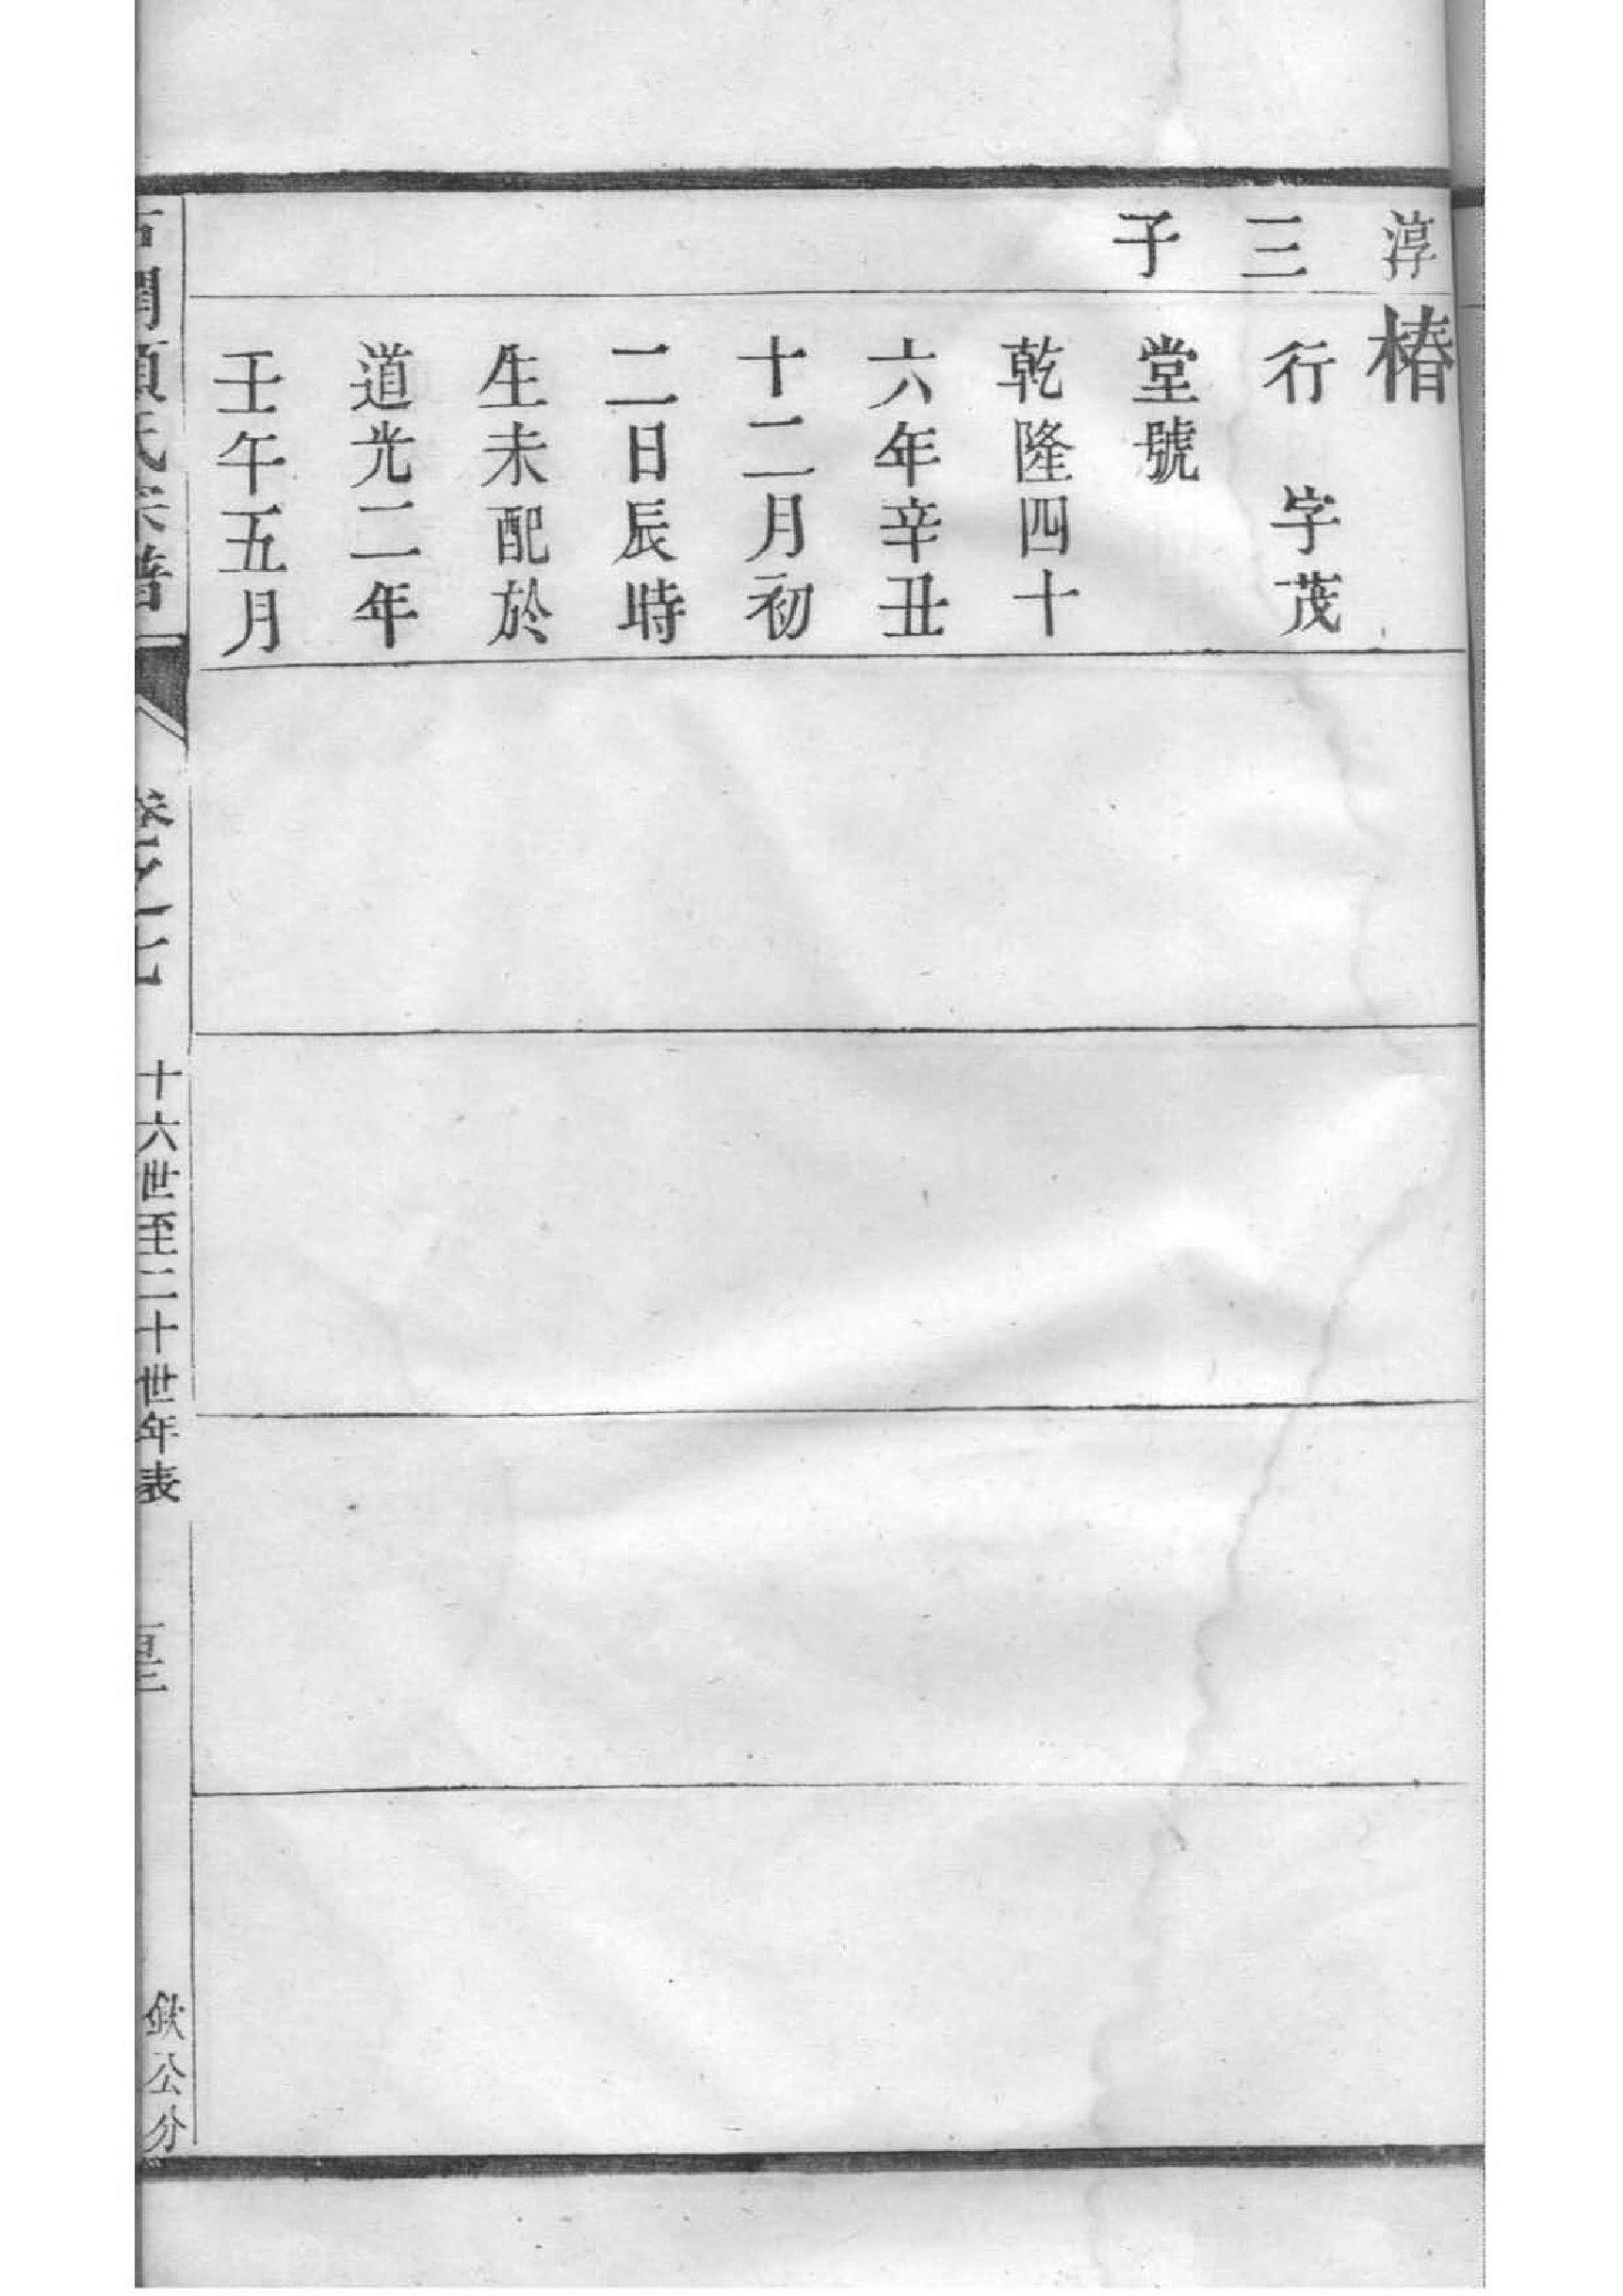 淳
三
子
椿
行　字茂
堂號
乾隆四十
六年辛丑
十二月初
二日辰時
生未配於
道光二年
壬午五月
氏宗譜
卷
十六世至二十世年表
公分